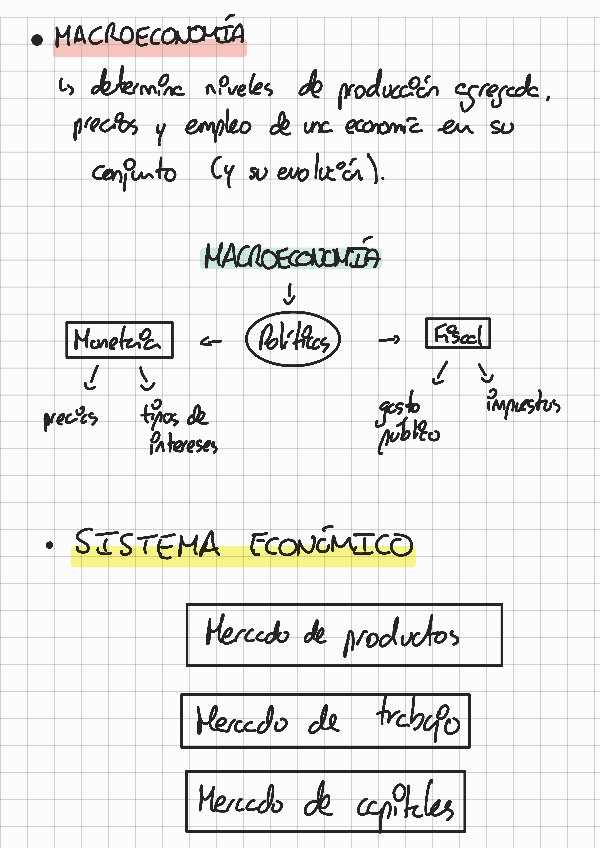 • MACROECONOMÍA
↳ determina niveles de producción agregada,
precios y empleo de una economía en su
conjunto (y su evolución).
MACROECONOMÍA
↓
Monetaria ← Políticas → Fiscal
precios tipos de intereses gasto público impuestos
• SISTEMA ECONÓMICO
Mercado de productos
Mercado de trabajo
Mercado de capitales